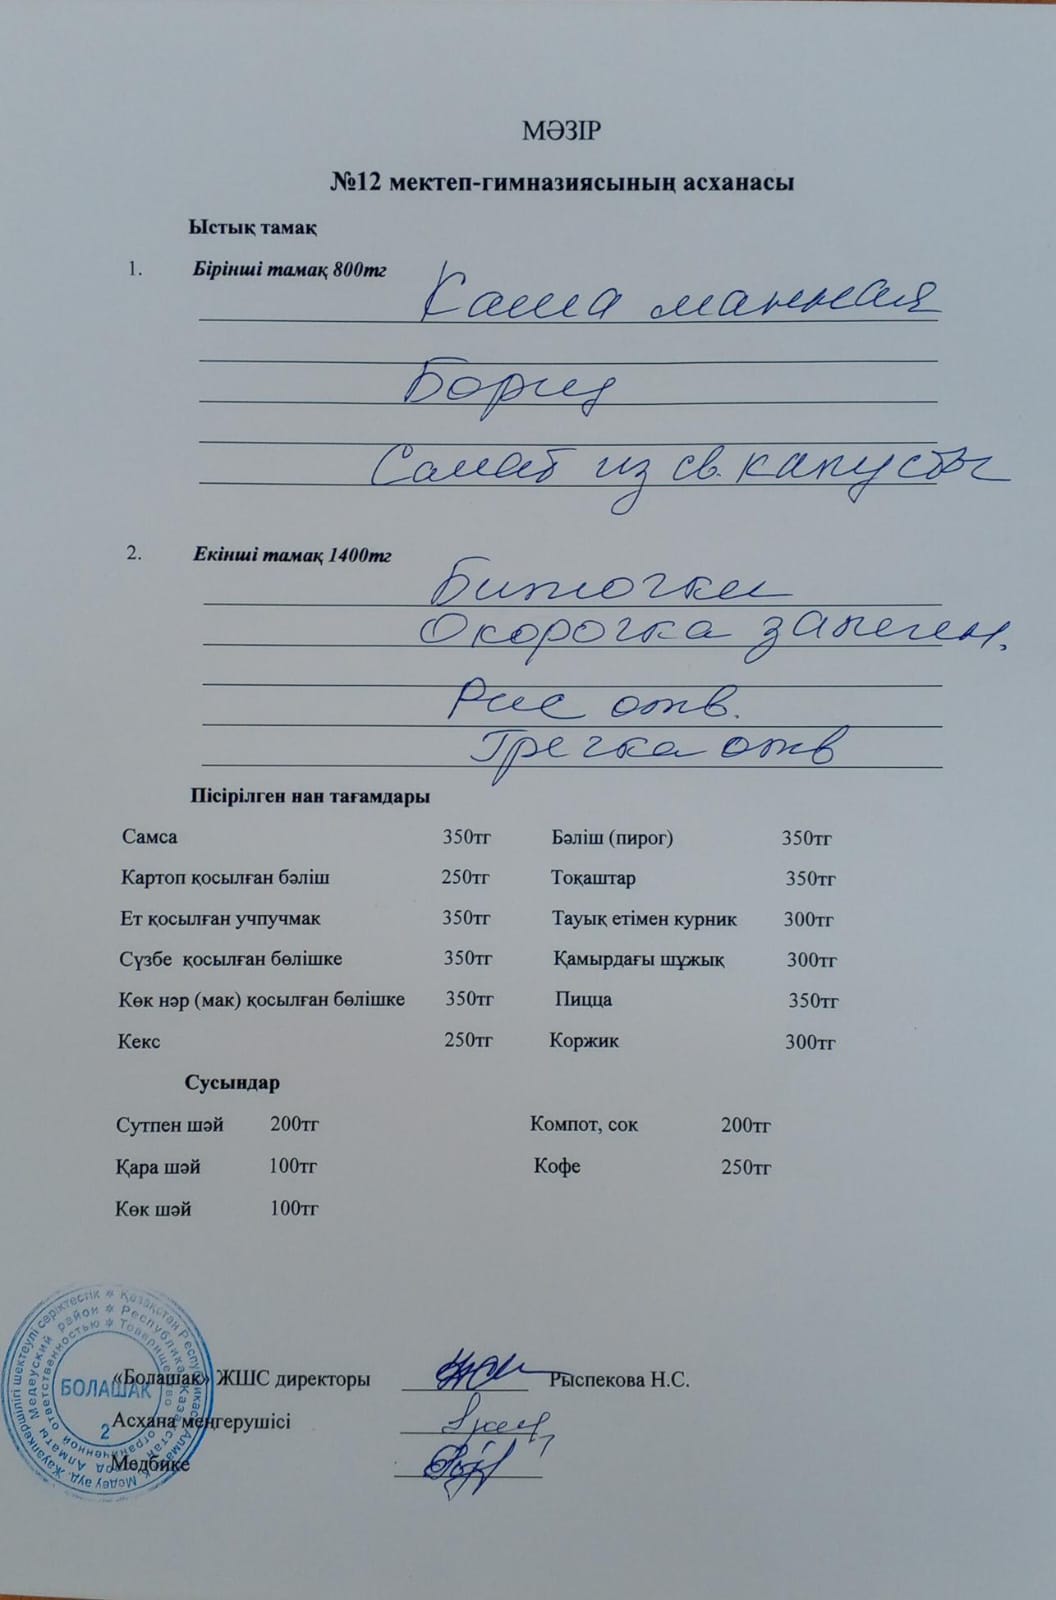 МӘЗІР
№12 мектеп-гимназиясының асханасы
Ыстық тамақ
1. Бірінші тамақ 800тг
Каша манная
Борщ
Салат из св. капусты
2. Екінші тамақ 1400тг
Биточки
Окорочка запечен.
Рис отв.
Гречка отв
Пісірілген нан тағамдары
Самса 350тг Бәліш (пирог) 350тг
Картоп қосылған бәліш 250тг Тоқаштар 350тг
Ет қосылған учпучмак 350тг Тауық етімен курник 300тг
Сүзбе қосылған бөлішке 350тг Қамырдағы шұжық 300тг
Көк нәр (мак) қосылған бөлішке 350тг Пицца 350тг
Кекс 250тг Коржик 300тг
Сусындар
Сутпен шәй 200тг Компот, сок 200тг
Қара шәй 100тг Кофе 250тг
Көк шәй 100тг
«Болашақ» ЖШС директоры Рыспекова Н.С.
Асхана меңгерушісі
Медбике
БОЛАШАК
2